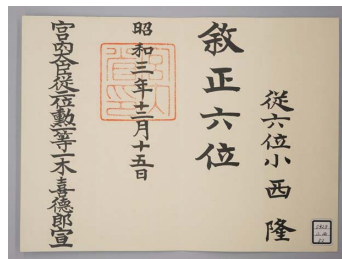 從六位小西隆
敘正六位
昭和三年十二月十五日
宮内大臣從二位勲一等一木喜德郎宣